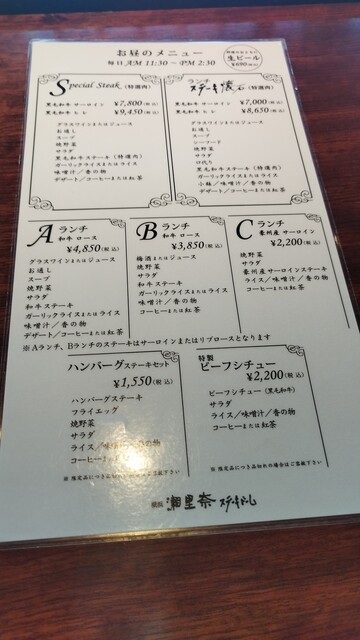 お昼のメニュー
毎日 AM 11:30 ~ PM 2:30
生ビール
¥690(税込)
Special Steak (特選肉)
黒毛和牛 サーロイン ¥7,800(税込)
黒毛和牛 ヒレ ¥9,450(税込)
グラスワインまたはジュース
お通し
スープ
焼野菜
サラダ
黒毛和牛ステーキ (特選肉)
ガーリックライスまたはライス
味噌汁/香の物
デザート/コーヒーまたは紅茶
ランチ
ステーキ懐石 (特選肉)
黒毛和牛 サーロイン ¥7,000(税込)
黒毛和牛 ヒレ ¥8,650(税込)
グラスワインまたはジュース
お通し
スープ
シーフード
焼野菜
サラダ
口代り
黒毛和牛ステーキ (特選肉)
ガーリックライスまたはライス
小鉢/味噌汁/香の物
デザート/コーヒーまたは紅茶
Aランチ
和牛 ロース
¥4,850(税込)
グラスワインまたはジュース
お通し
スープ
焼野菜
サラダ
和牛ステーキ
ガーリックライスまたはライス
味噌汁/香の物
デザート/コーヒーまたは紅茶
Bランチ
和牛 ロース
¥3,850(税込)
梅酒またはジュース
焼野菜
サラダ
和牛ステーキ
ガーリックライスまたはライス
味噌汁/香の物
コーヒーまたは紅茶
Cランチ
豪州産 サーロイン
¥2,200(税込)
焼野菜
サラダ
豪州産サーロインステーキ
ライス/味噌汁/香の物
コーヒーまたは紅茶
※Aランチ、Bランチのステーキはサーロインまたはリブロースとなります
ハンバーグステーキセット
¥1,550(税込)
ハンバーグステーキ
フライエッグ
焼野菜
サラダ
ライス/味噌汁/香の物
コーヒーまたは
※限定品につき品切れの場合はご容赦下さい
特製
ビーフシチュー
¥2,200(税込)
ビーフシチュー (黒毛和牛)
サラダ
ライス/味噌汁/香の物
コーヒーまたは紅茶
※限定品につき品切れの場合はご容赦下さい
瀬里奈 ステーキ